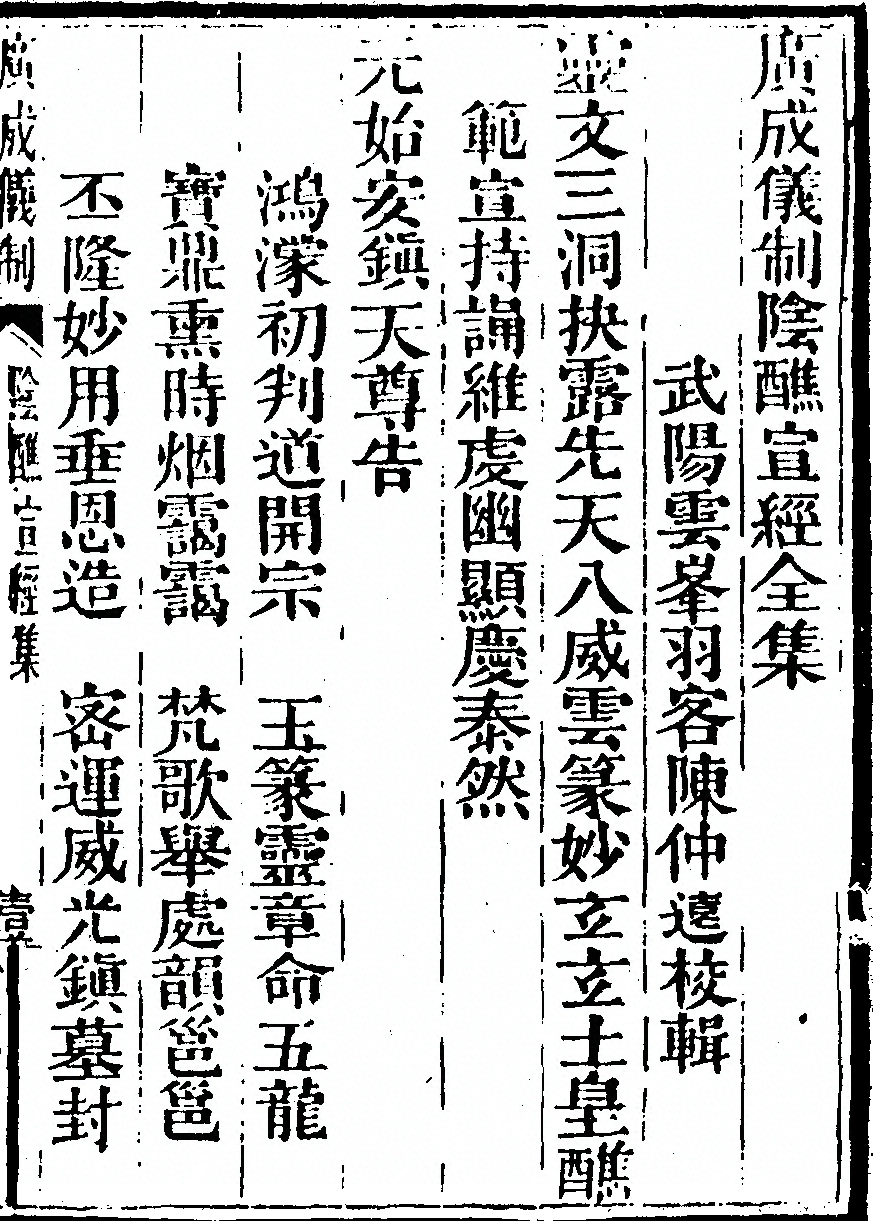 廣成儀制陰醮宣經全集
武陽雲峯羽客陳仲遠校輯
靈文三洞抉露先天八威雲篆妙立立土皇醮
範宣持誦維虔幽顯慶泰然
元始安鎮天尊告
鴻濛初判道開宗　玉篆靈章命五龍
寶鼎熏時烟靄靄　梵歌舉處韻邕邕
丕隆妙用垂恩造　密運威光鎮墓封
廣成儀制　陰醮宣經集　壹